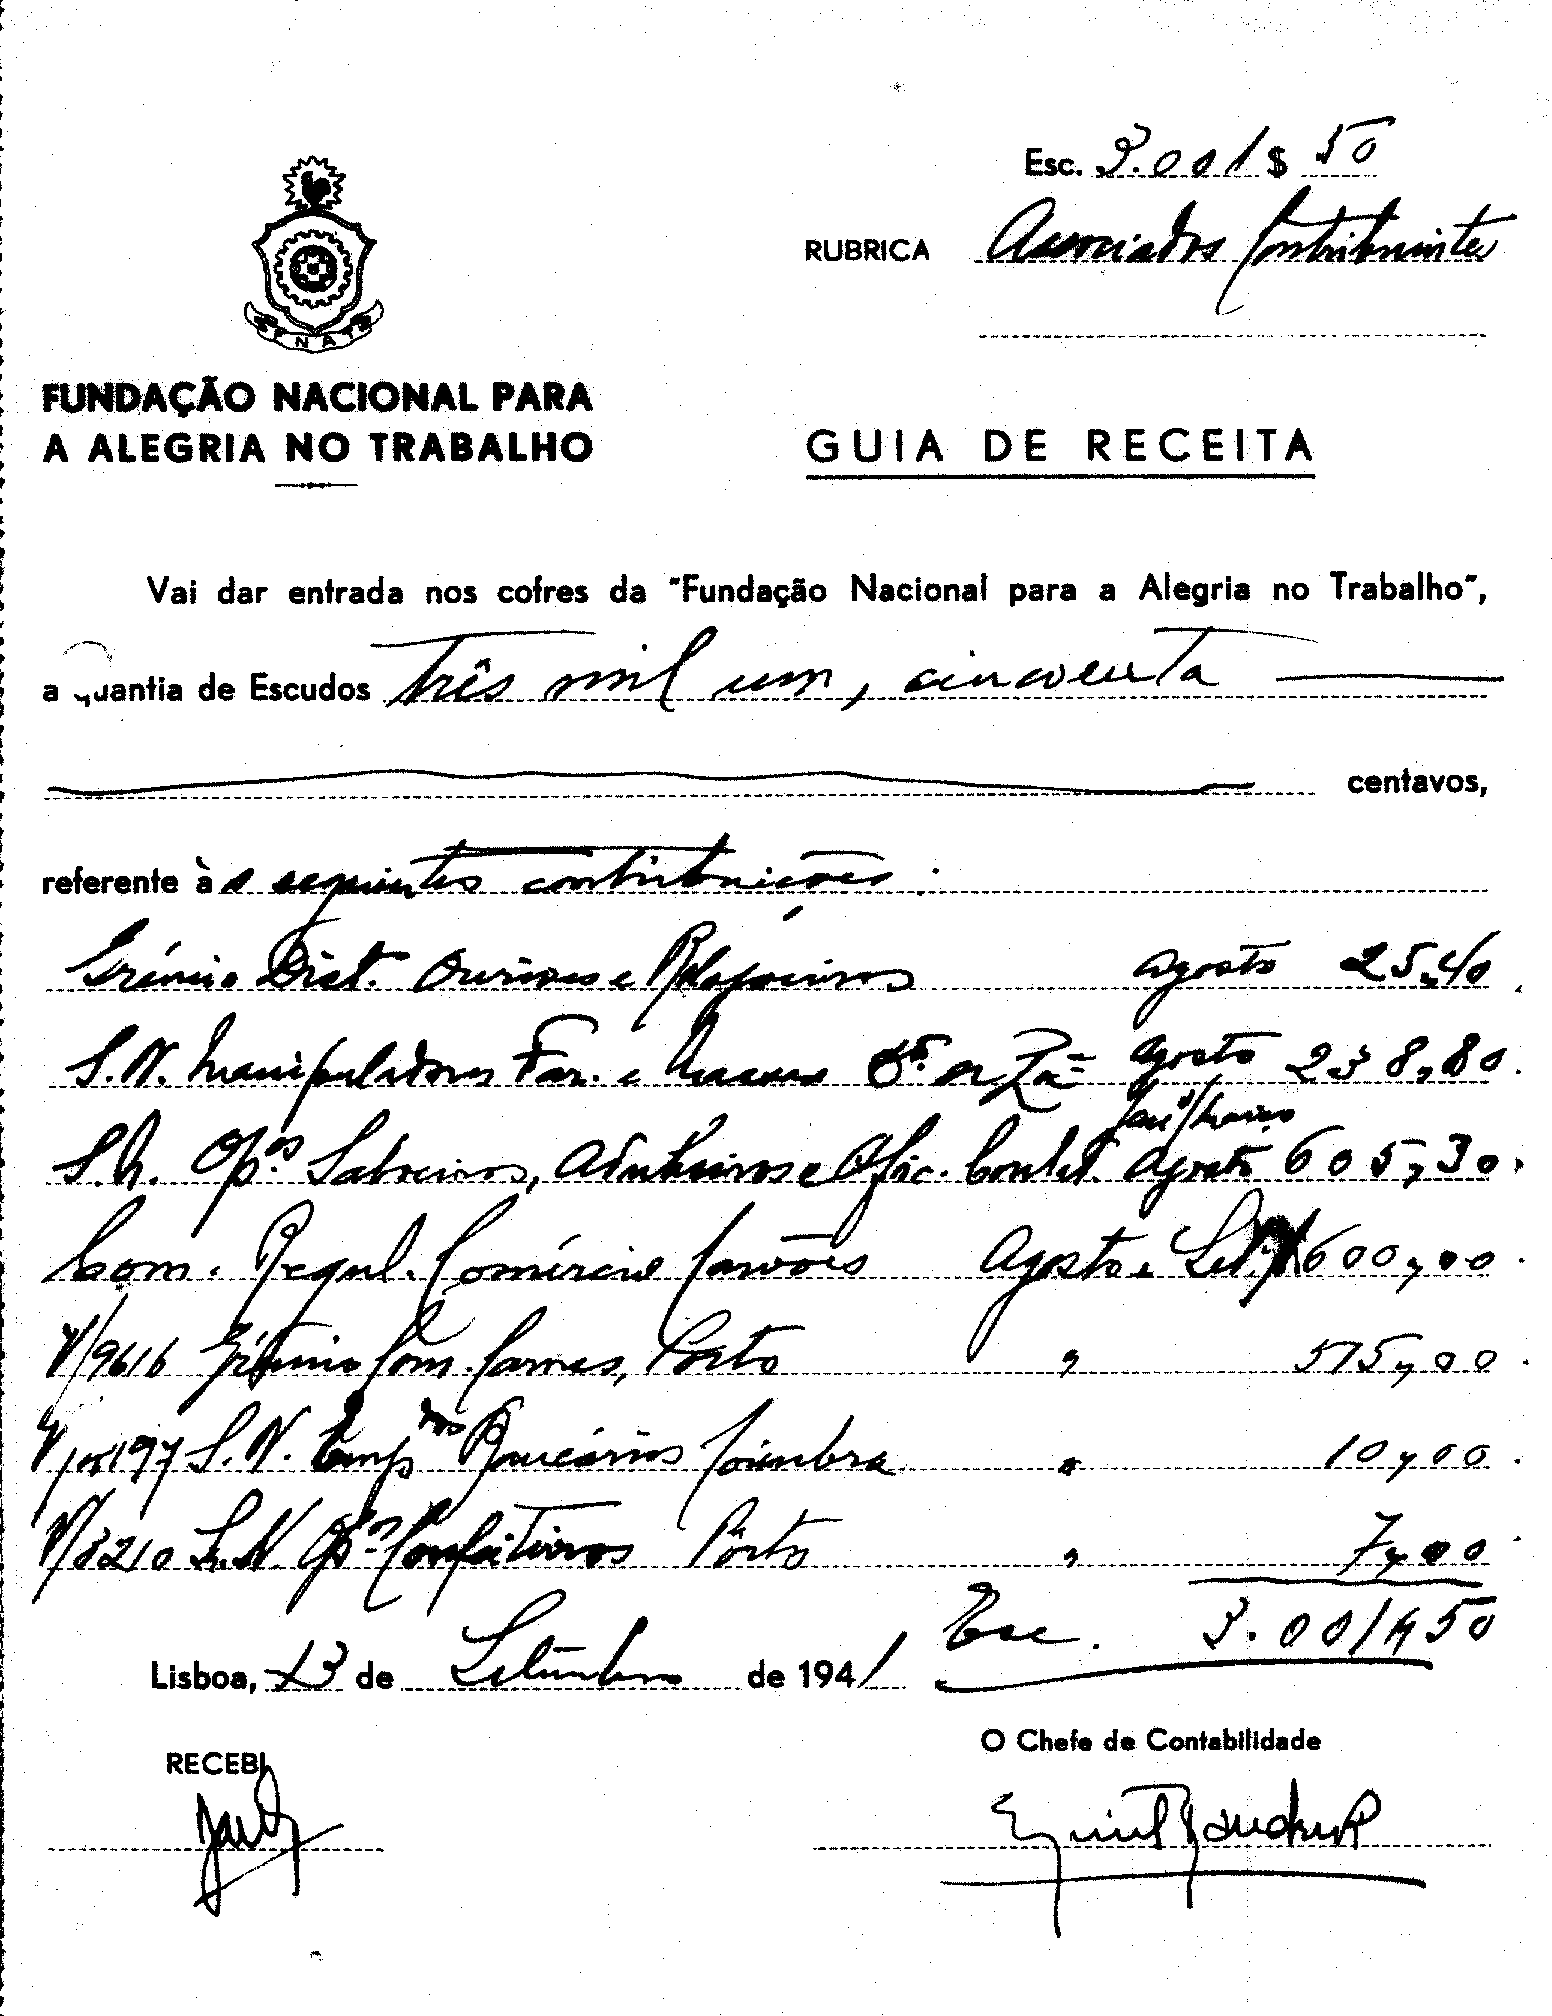 Esc. 3.001 $ 50
RUBRICA Associados Contribuintes
FNAT
FUNDAÇÃO NACIONAL PARA
A ALEGRIA NO TRABALHO
GUIA DE RECEITA
Vai dar entrada nos cofres da "Fundação Nacional para a Alegria no Trabalho",
a quantia de Escudos três mil um, cincoenta
centavos,
referente às seguintes contribuições:
Grémio Dist. Ourives e Relojoeiros agosto 25,40
S.N. Manipuladores Far. e agosto 238,80
S.N. Op.os e Ofic. agosto 605,30
Com. Regul. Comércio Carvões Agosto e Set. 600,00
V/9616 Grémio Com. Carnes, Porto " 575,00
197 S.N. Emp.dos Bancários Coimbra " 10,00
V/8210 S.N. Op.os Confeiteiros Porto " 7,00
Esc. 3.001$50
Lisboa, 13 de Setembro de 1941
O Chefe de Contabilidade
RECEBI